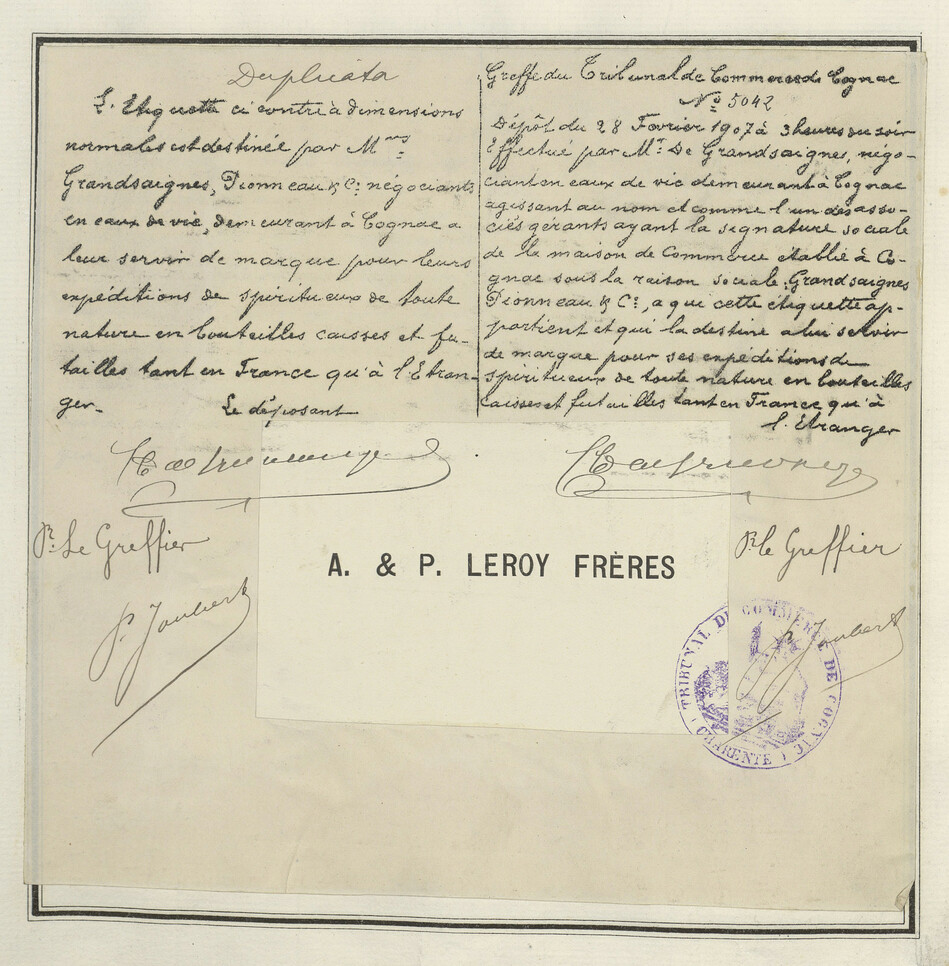 Duplicata
L'Etiquette ci contre à dimensions
normales est destinée par M.rs
Grandsaignes, Pionneau & Cie négociants
en eaux de vie, demeurant à Cognac a
leur servir de marque pour leurs
expéditions de spiritueux de toute
nature en bouteilles caisses et fu-
tailles tant en France qu'à l'Etran-
ger.
Le déposant
Pr Le Greffier
P. Joubert
Greffe du Tribunal de Commerce de Cognac
No 5042
Dépôt du 28 Fevrier 1907 à 3 heures du soir
Effectué par Mr De Grandsaignes, négo-
ciant en eaux de vie demeurant à Cognac
agissant au nom et comme l'un des asso-
ciés gérants ayant la signature sociale
de la maison de Commerce établie à Co-
gnac sous la raison sociale Grandsaignes
Pionneau & Cie, a qui cette étiquette ap-
partient et qui la destine a lui servir
de marque pour ses expéditions de
spiritueux de toute nature en bouteilles
caisses et futailles tant en France qu'à
l'Etranger
Pr le Greffier
P. Joubert
A. & P. LEROY FRÈRES
TRIBUNAL DE COMMERCE DE COGNAC
(CHARENTE)